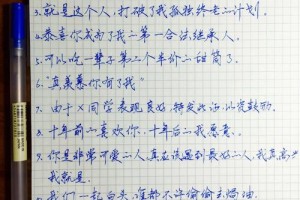 3.就是这个人，打破了我孤独终老的计划。
4.恭喜你成为了我第一合法继承人。
5.可以吃一辈子第二个半价的甜筒了。
6."真羡慕你有了我"
7.由于×同学表现良好，特发此证，以资鼓励。
8.十年前的喜欢你，十年后的我愿意。
9.你是非常可爱的人，真应该遇到最好的人，我真高兴
我就是.
0.我们一起白头，谁都不许偷偷去焗油.